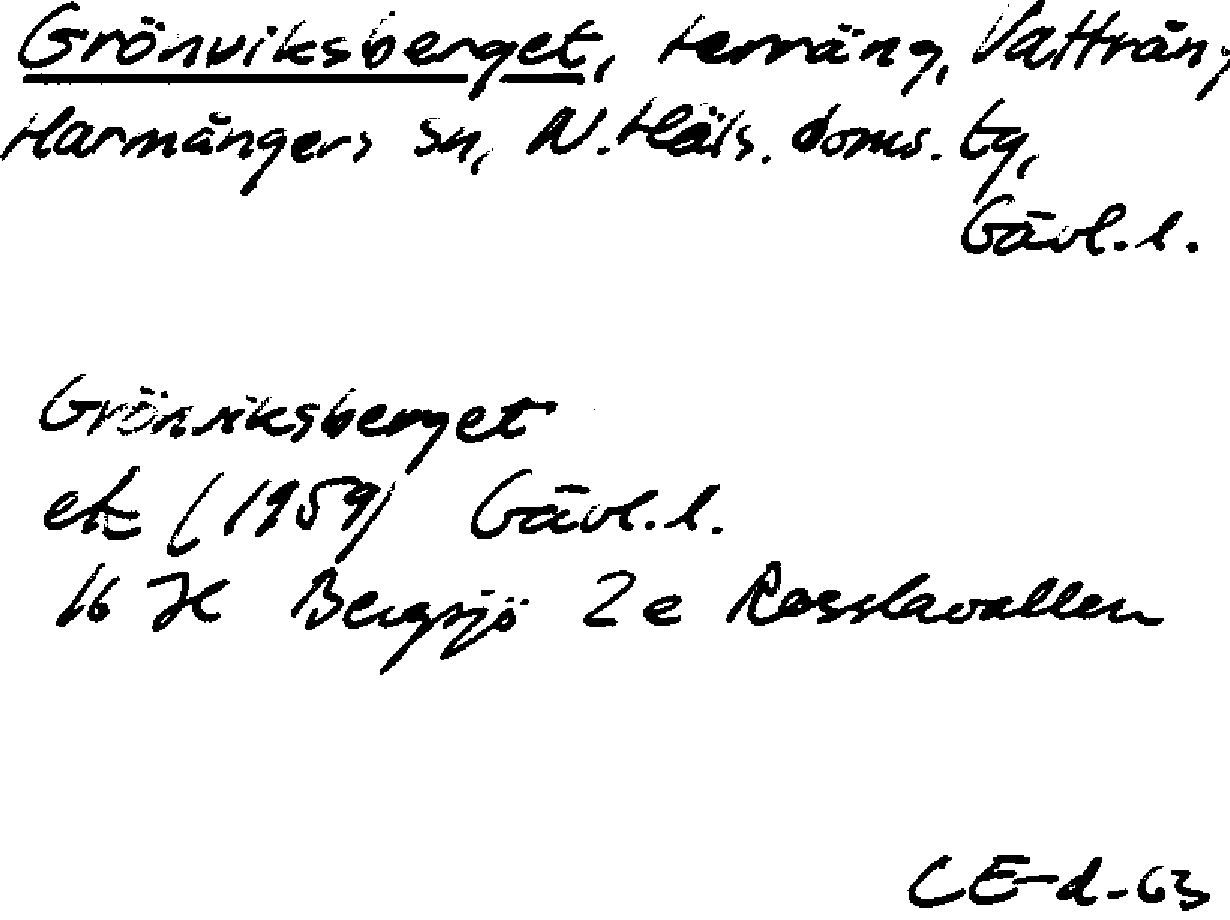 Grönviksberget, terräng, Vattrång
Harmångers sn, N. Häls. doms. tg,
Gävl. l.
Grönviksberget
ek (1959) Gävl. l.
16 H Bergsjö 2e Rosslavallen
CE-d-63